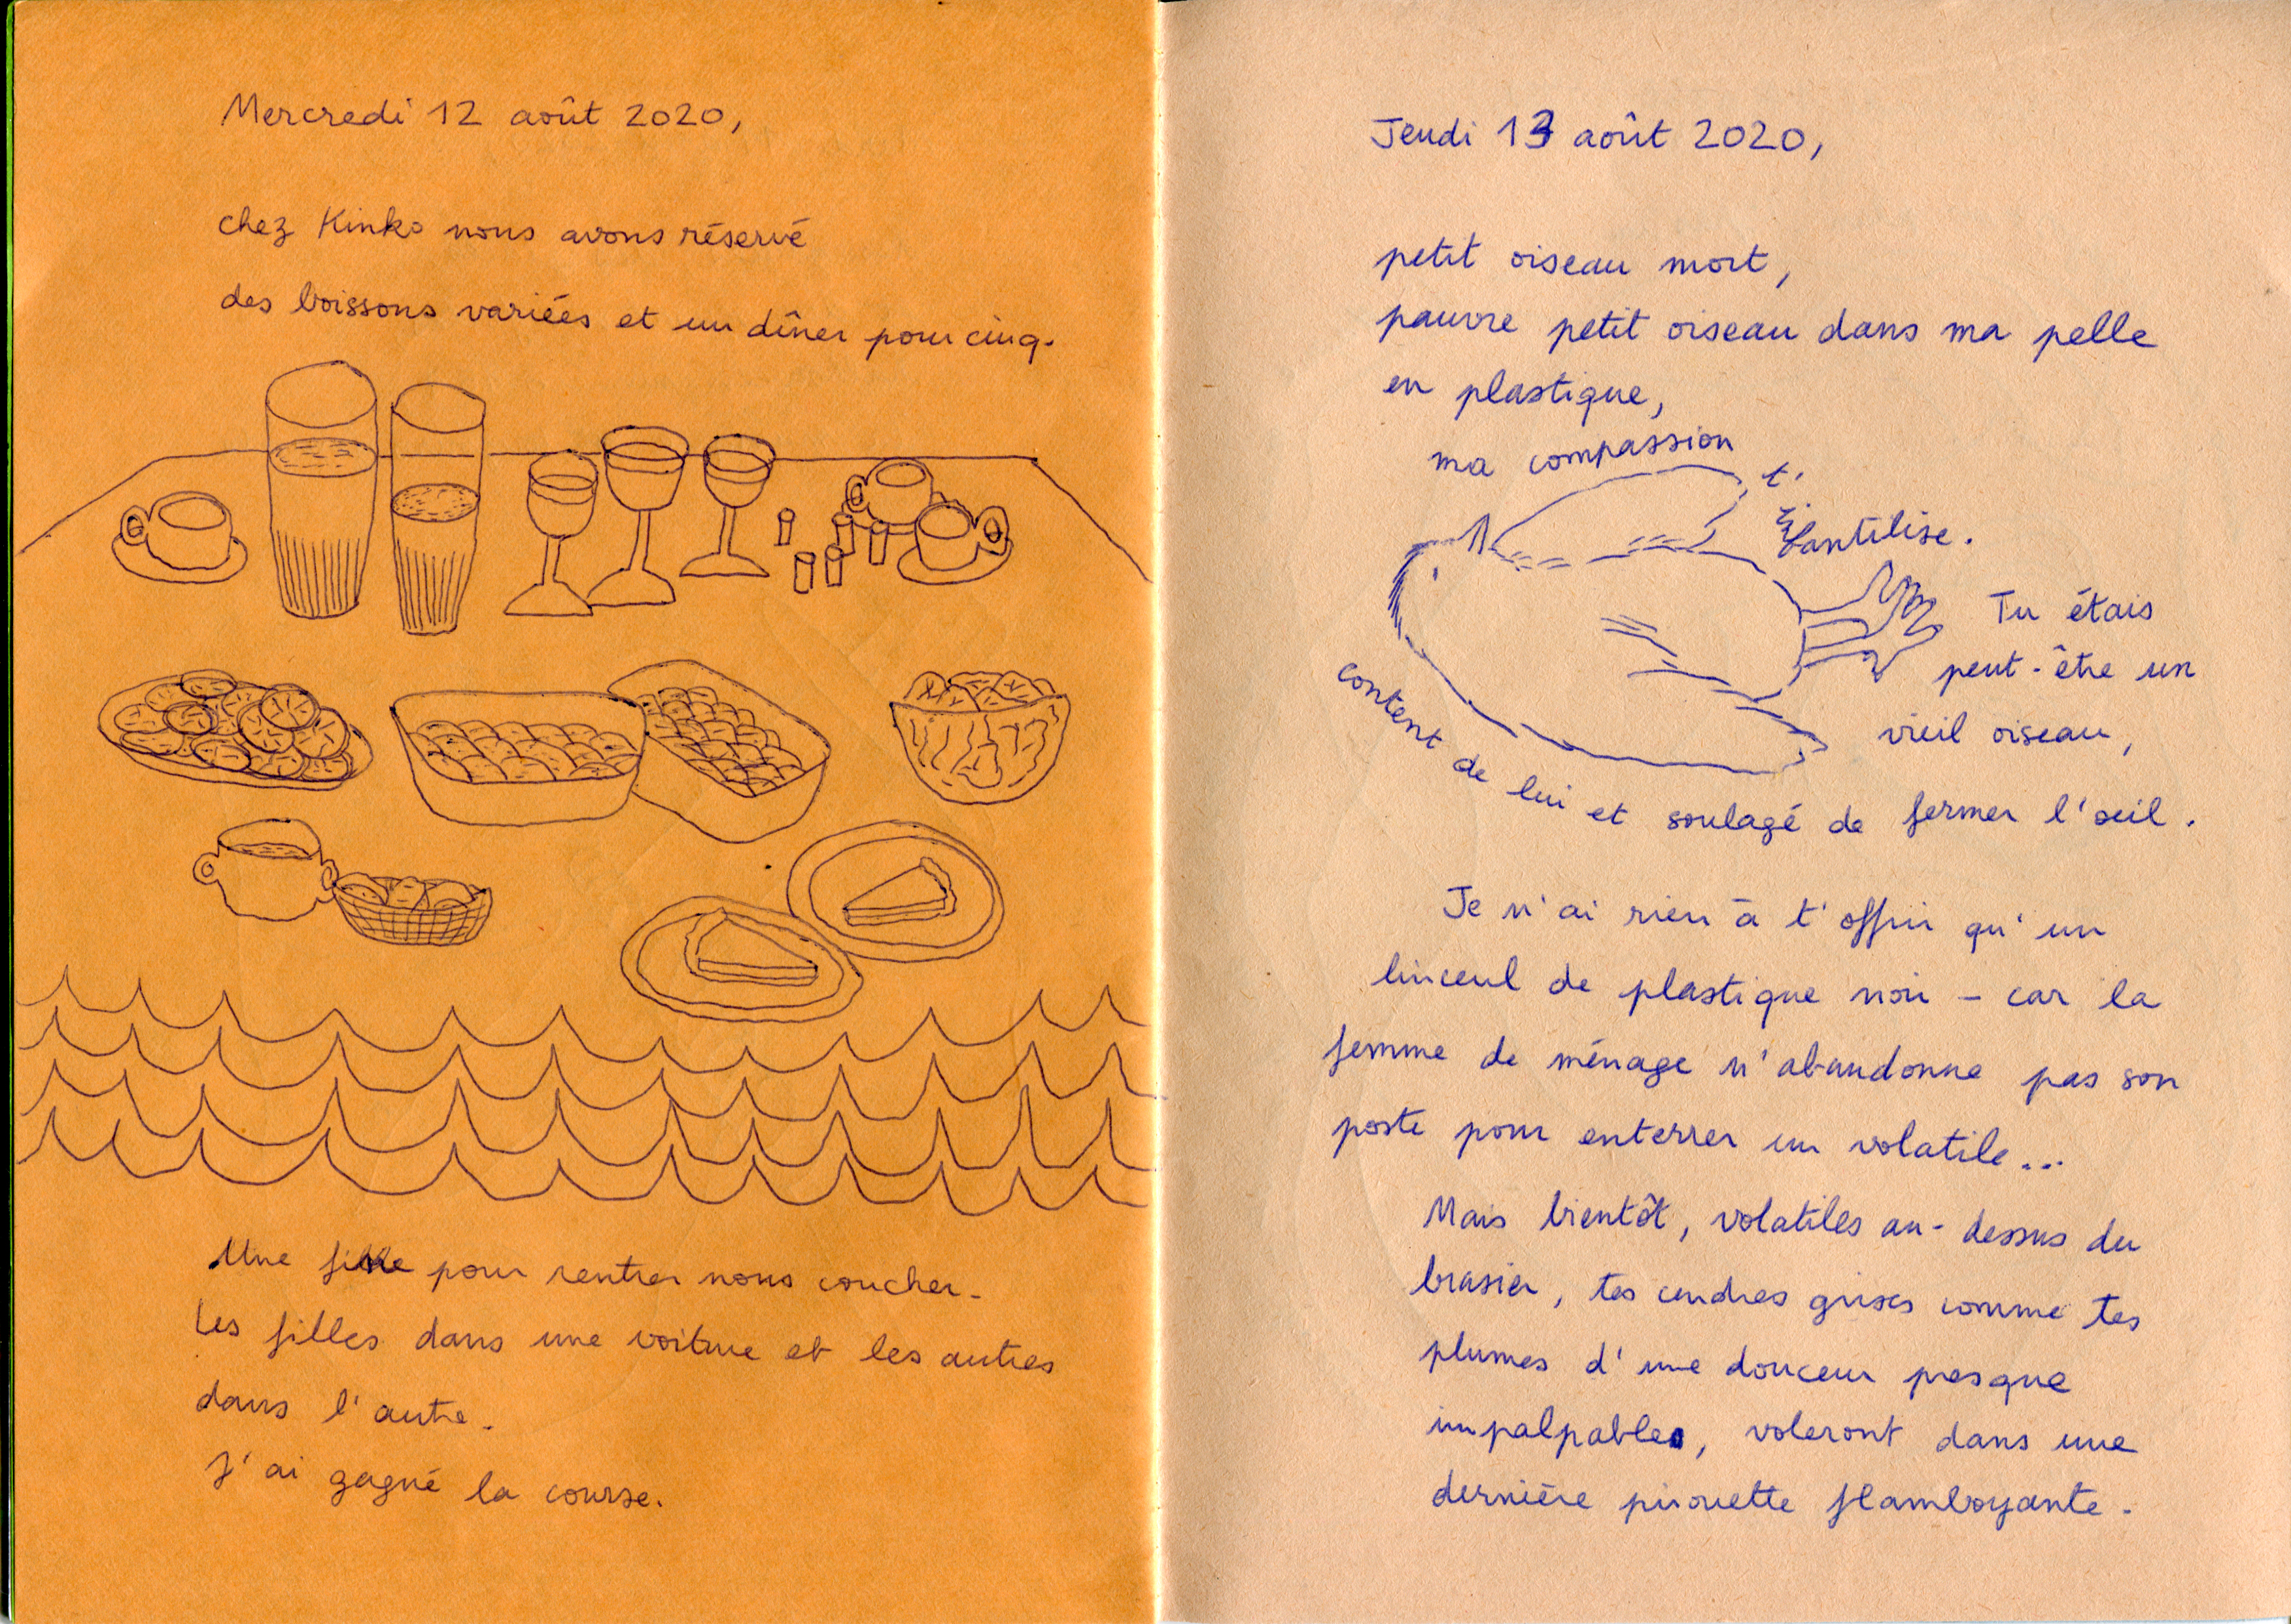 Mercredi 12 août 2020,
chez Kinko nous avons réservé
des boissons variées et un dîner pour cinq.
Une fille pour rentrer nous coucher.
Les filles dans une voiture et les autres
dans l'autre.
J'ai gagné la course.
Jeudi 13 août 2020,
petit oiseau mort,
pauvre petit oiseau dans ma pelle
en plastique,
ma compassion
t'
infantilise.
Tu étais
peut-être un
vieil oiseau,
content de lui et soulagé de fermer l'œil.
Je n'ai rien à t'offrir qu'un
linceul de plastique noir - car la
femme de ménage n'abandonne pas son
poste pour enterrer un volatile...
Mais bientôt, volatiles au-dessus du
brasier, tes cendres grises comme tes
plumes d'une douceur presque
impalpables, voleront dans une
dernière pirouette flamboyante.